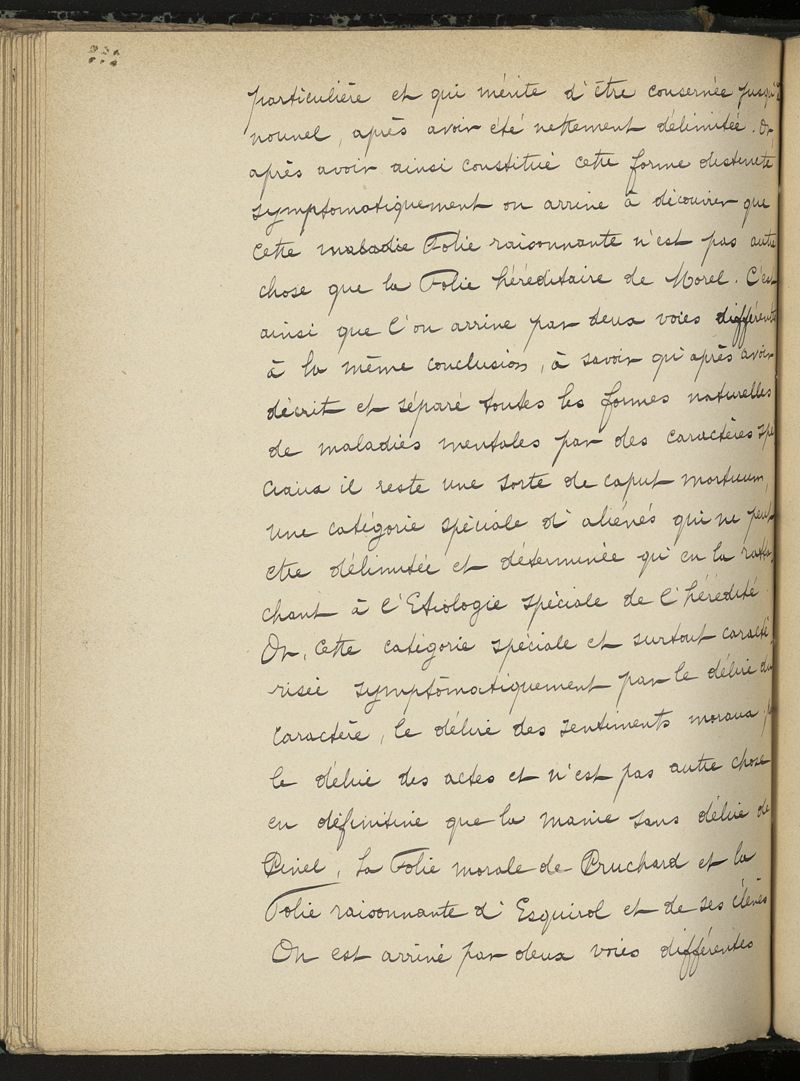 particulière et qui mérite d'être conservée jusqu'à
nouvel, après avoir été nettement délimitée. Or
après avoir ainsi constitué cette forme obstineté
symptomatiquement on arrive à découvrir que
cette maladie Folie raisonnante n'est pas autre
chose que la Folie héréditaire de Morel. C'est
ainsi que l'on arrive par deux voies différentes
à la même conclusion, à savoir qu'après avoir
décrit et séparé toutes les formes naturelles
de maladies mentales par des caractères spé
ciaux il reste une sorte de caput mortuum,
une catégorie spéciale d'aliénés qui ne peut
etre délimitée et déterminée qu'en la ratta
chant à l'Etiologie spéciale de l'hérédité.
Or, cette catégorie spéciale et surtout caracté
risée symptômatiquement par le délire du
caractère, le délire des sentiments moraux,
le délire des actes et n'est pas autre chose
en définitive que la manie sans délire de
Pinel, la Folie morale de Pruchard et la
Folie raisonnante d'Esquirol et de ses élèves
On est arrivé par deux voies différentes